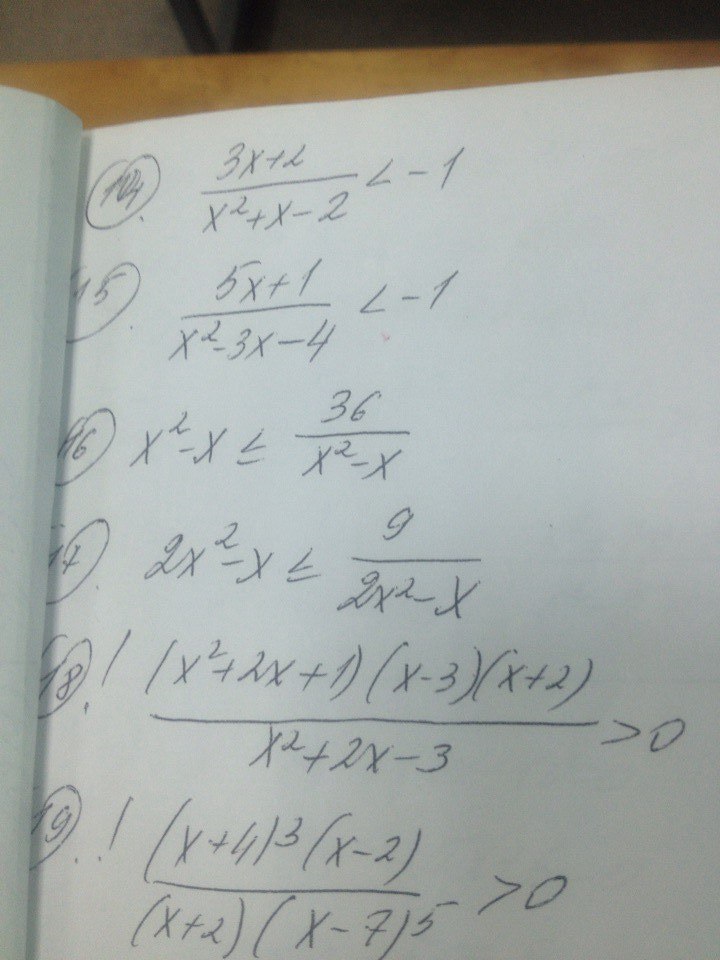 14. (3x+2)/(x²+x-2) < -1
15. (5x+1)/(x²-3x-4) < -1
16) x²-x ≤ 36/(x²-x)
17. 2x²-x ≤ 9/(2x²-x)
18. ! ((x²+2x+1)(x-3)(x+2))/(x²+2x-3) > 0
19. ! ((x+4)³(x-2))/((x+2)(x-7)⁵) > 0